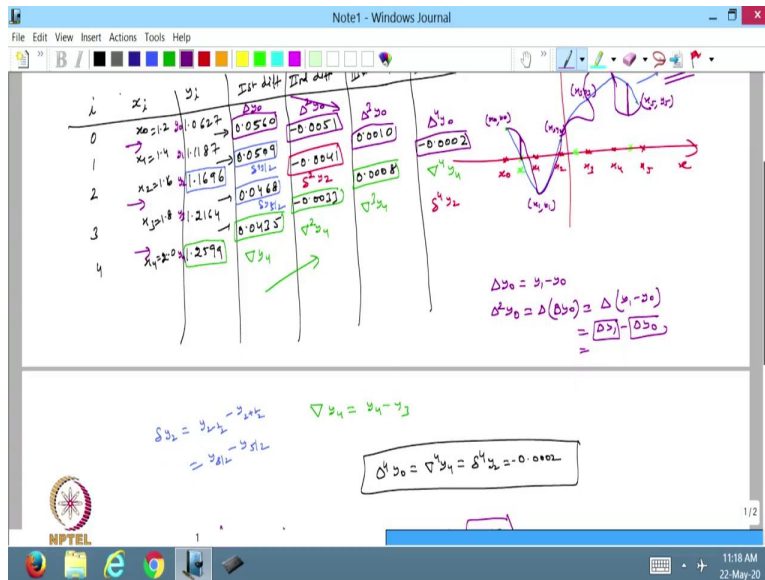 Note1 - Windows Journal
File Edit View Insert Actions Tools Help
i xi yi Ist diff IInd diff
Δy0 Δ²y0 Δ³y0 Δ⁴y0
0 x0=1.2 y0 1.0627 0.0560 -0.0051 0.0010 -0.0002
1 x1=1.4 y1 1.1187 0.0509 -0.0041 0.0008 ∇⁴y4
2 x2=1.6 1.1696 0.0468 δ²y2 -0.0033 ∇³y4 δ⁴y2
3 x3=1.8 y3 1.2164 0.0435 ∇²y4
4 x4=2.0 y4 1.2599 ∇y4
(x0,y0)
(x5,y5)
(x1,y1)
x0 x1 x2 x3 x4 x5 x
Δy0 = y1-y0
Δ²y0 = Δ(Δy0) = Δ(y1-y0)
= Δy1 - Δy0
=
δy2 = y2-½ - y2+½
= y3/2 - y5/2
∇y4 = y4-y3
Δ⁴y0 = ∇⁴y4 = δ⁴y2 = -0.0002
NPTEL
1
1/2
11:18 AM
22-May-20